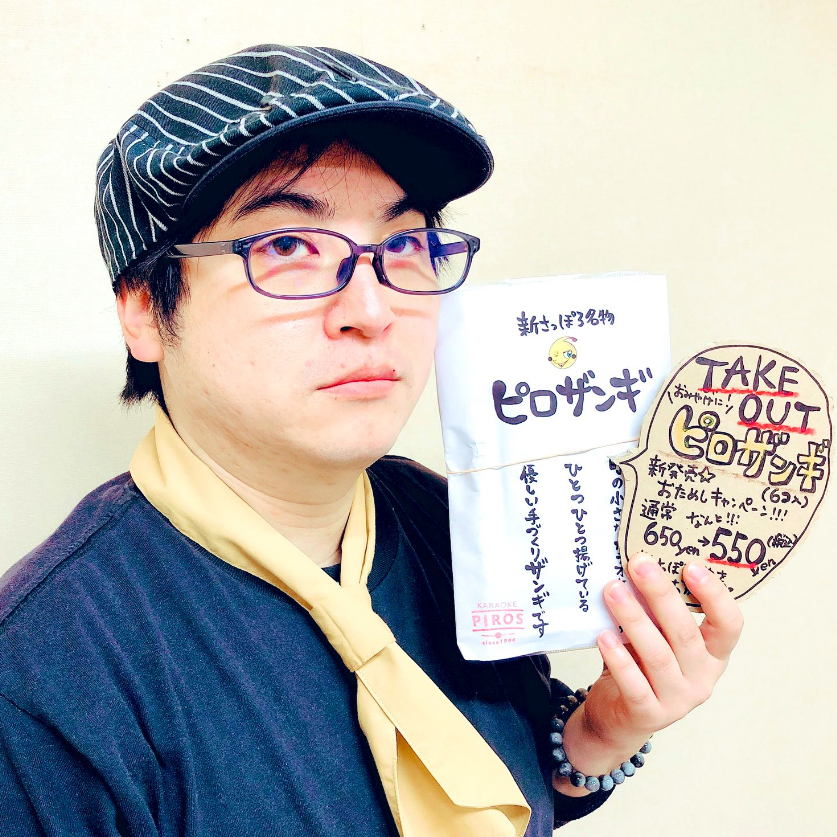 新さっぽろ名物
ピロザンギ
ひとつひとつ揚げている
優しい手づくりザンギです
KARAOKE
PIROS
since 1990
TAKE
OUT
おみやげに!
ピロザンギ
新発売☆
(6コ入)
おためしキャンペーン!!!
通常 なんと!!!
650yen→550yen
(税込)